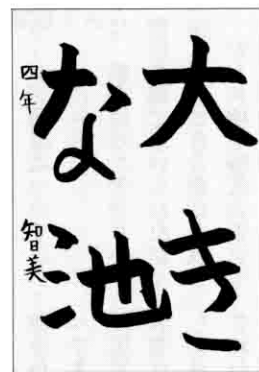 大き
な池
四年 智美